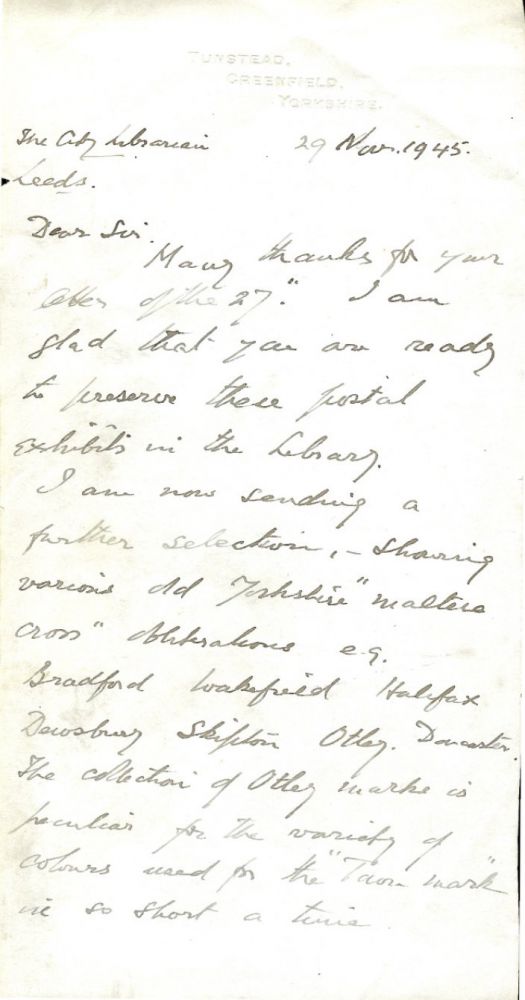 TUNSTEAD,
GREENFIELD,
YORKSHIRE.
The City Librarian 29 Nov. 1945.
Leeds.
Dear Sir.
Many thanks for your
letter of the 27". I am
glad that you are ready
to preserve these postal
exhibits in the Library.
I am now sending a
further selection, - showing
various old Yorkshire "maltese
cross" obliterations e.g.
Bradford Wakefield Halifax
Dewsbury Skipton Otley. Doncaster.
The collection of Otley marks is
peculiar for the variety of
colours used for the "Town mark"
in so short a time.